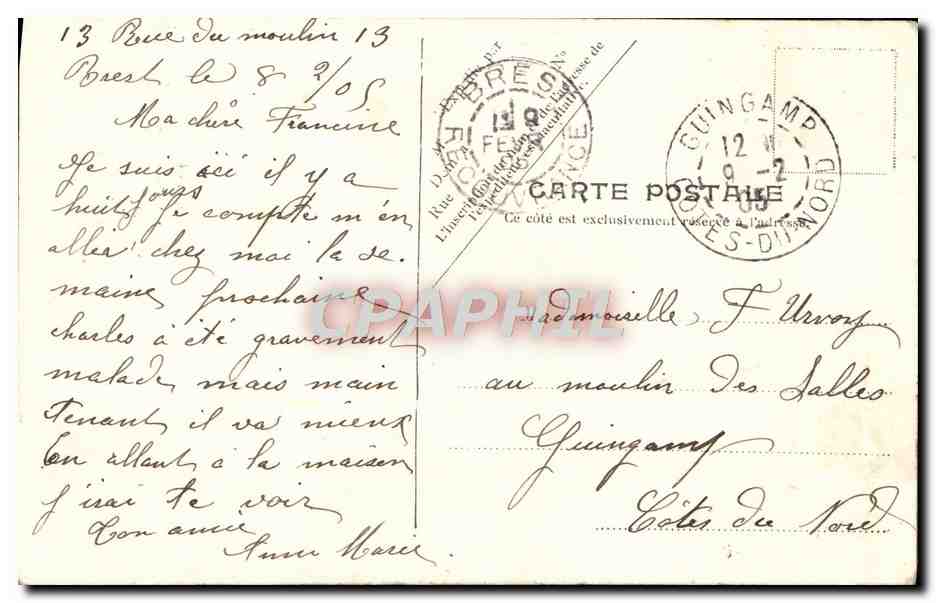 13 Rue du moulin 13
Brest le 8 2/05
Ma chère Francine
Je suis ici il y a
huit jours Je compte m'en
aller chez moi la se.
maine prochaine
charles à été gravement
malade mais main
tenant il va mieux
En allant à la maison
j'irai te voir
Ton amie
Anne Marie.
Expédié par
M
Demeurant
Rue
L'inscription du nom et de l'adresse de
l'expéditeur est facultative.
BREST
FEVR
FINISTÈRE
GUINGAMP
12
9 -2
05
COTES-DU-NORD
CARTE POSTALE
Ce côté est exclusivement réservé à l'adresse.
Mademoiselle F Urvoy
au moulin des Salles
Guingamp
Côtes du Nord
CPAPHIL